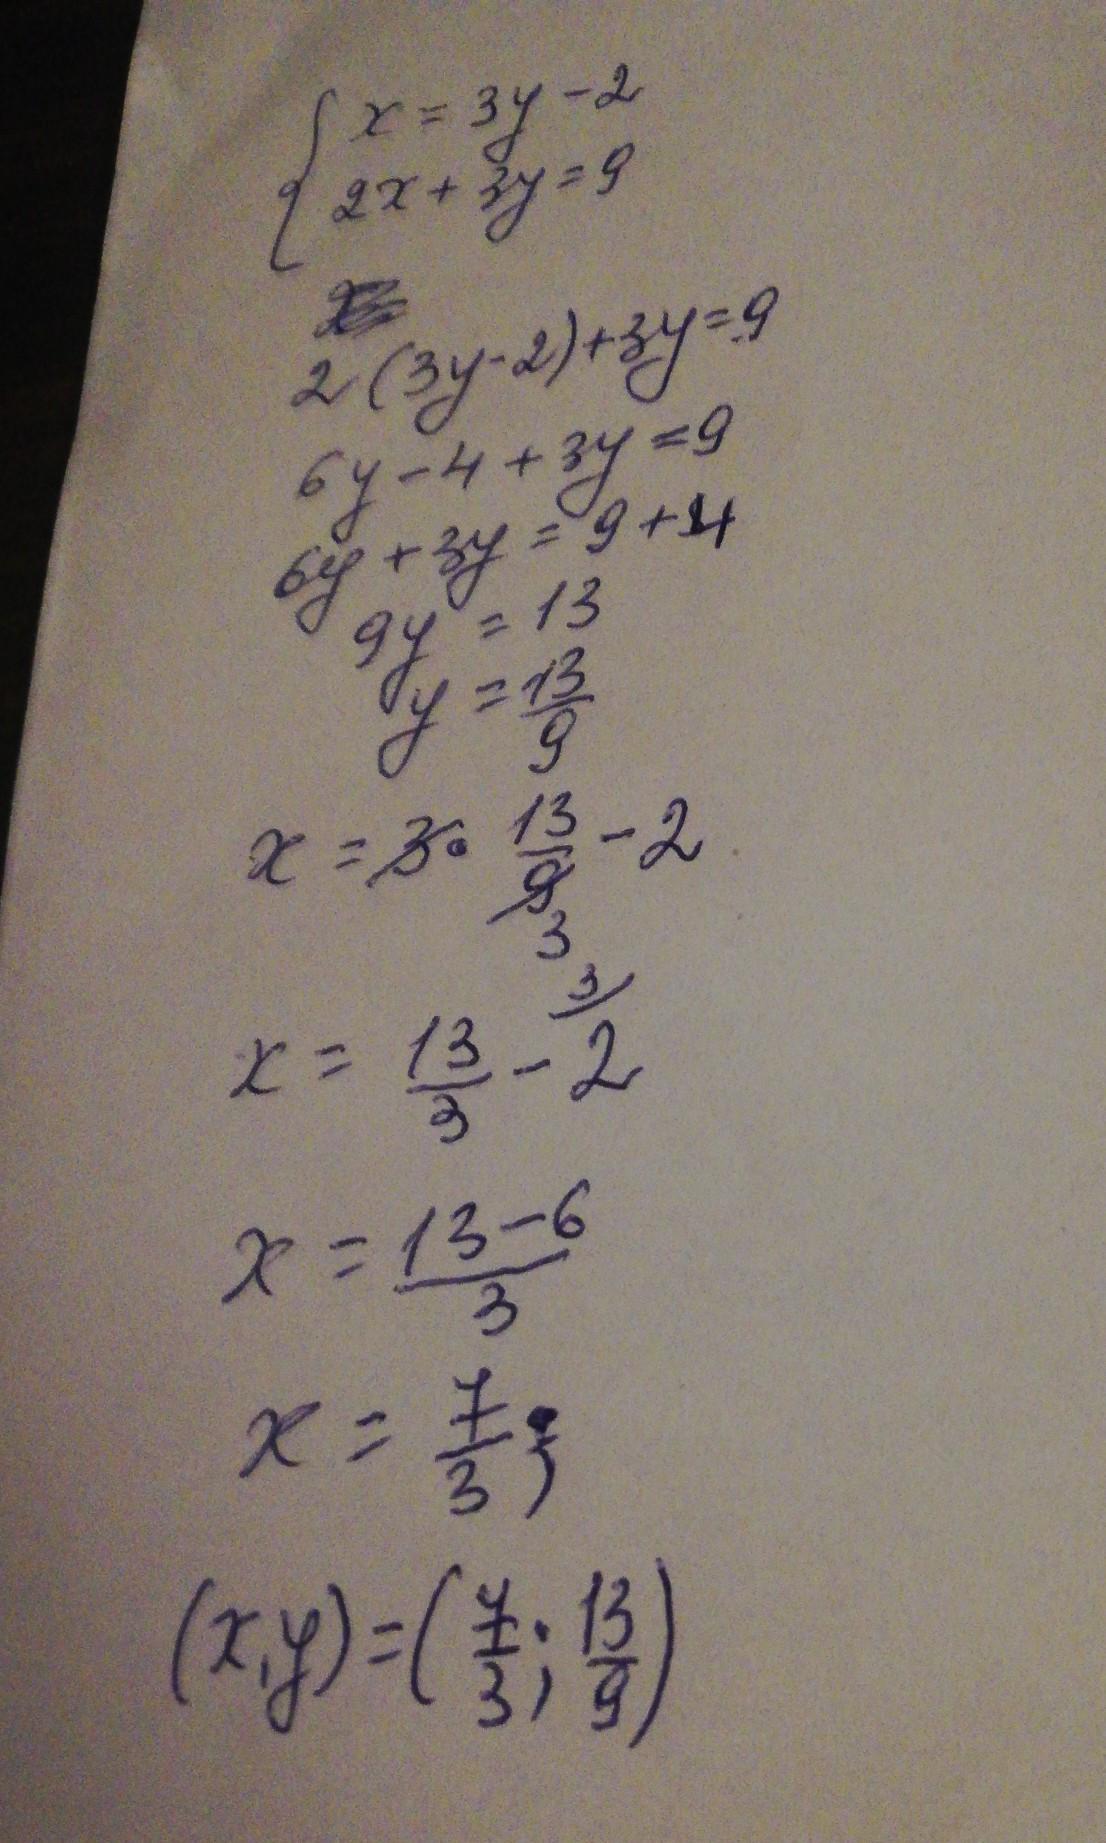 { x = 3y - 2
2x + 3y = 9
2(3y-2)+3y=9
6y - 4 + 3y = 9
6y + 3y = 9 + 4
9y = 13
y = 13/9
x = 3 · 13/9 - 2
3
3/
x = 13/3 - 2
x = (13-6)/3
x = 7/3;
(x,y)=(7/3; 13/9)